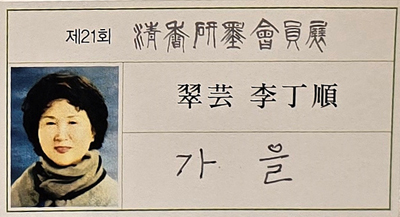 제21회 淸香硏墨會員展
翠芸 李丁順
가을